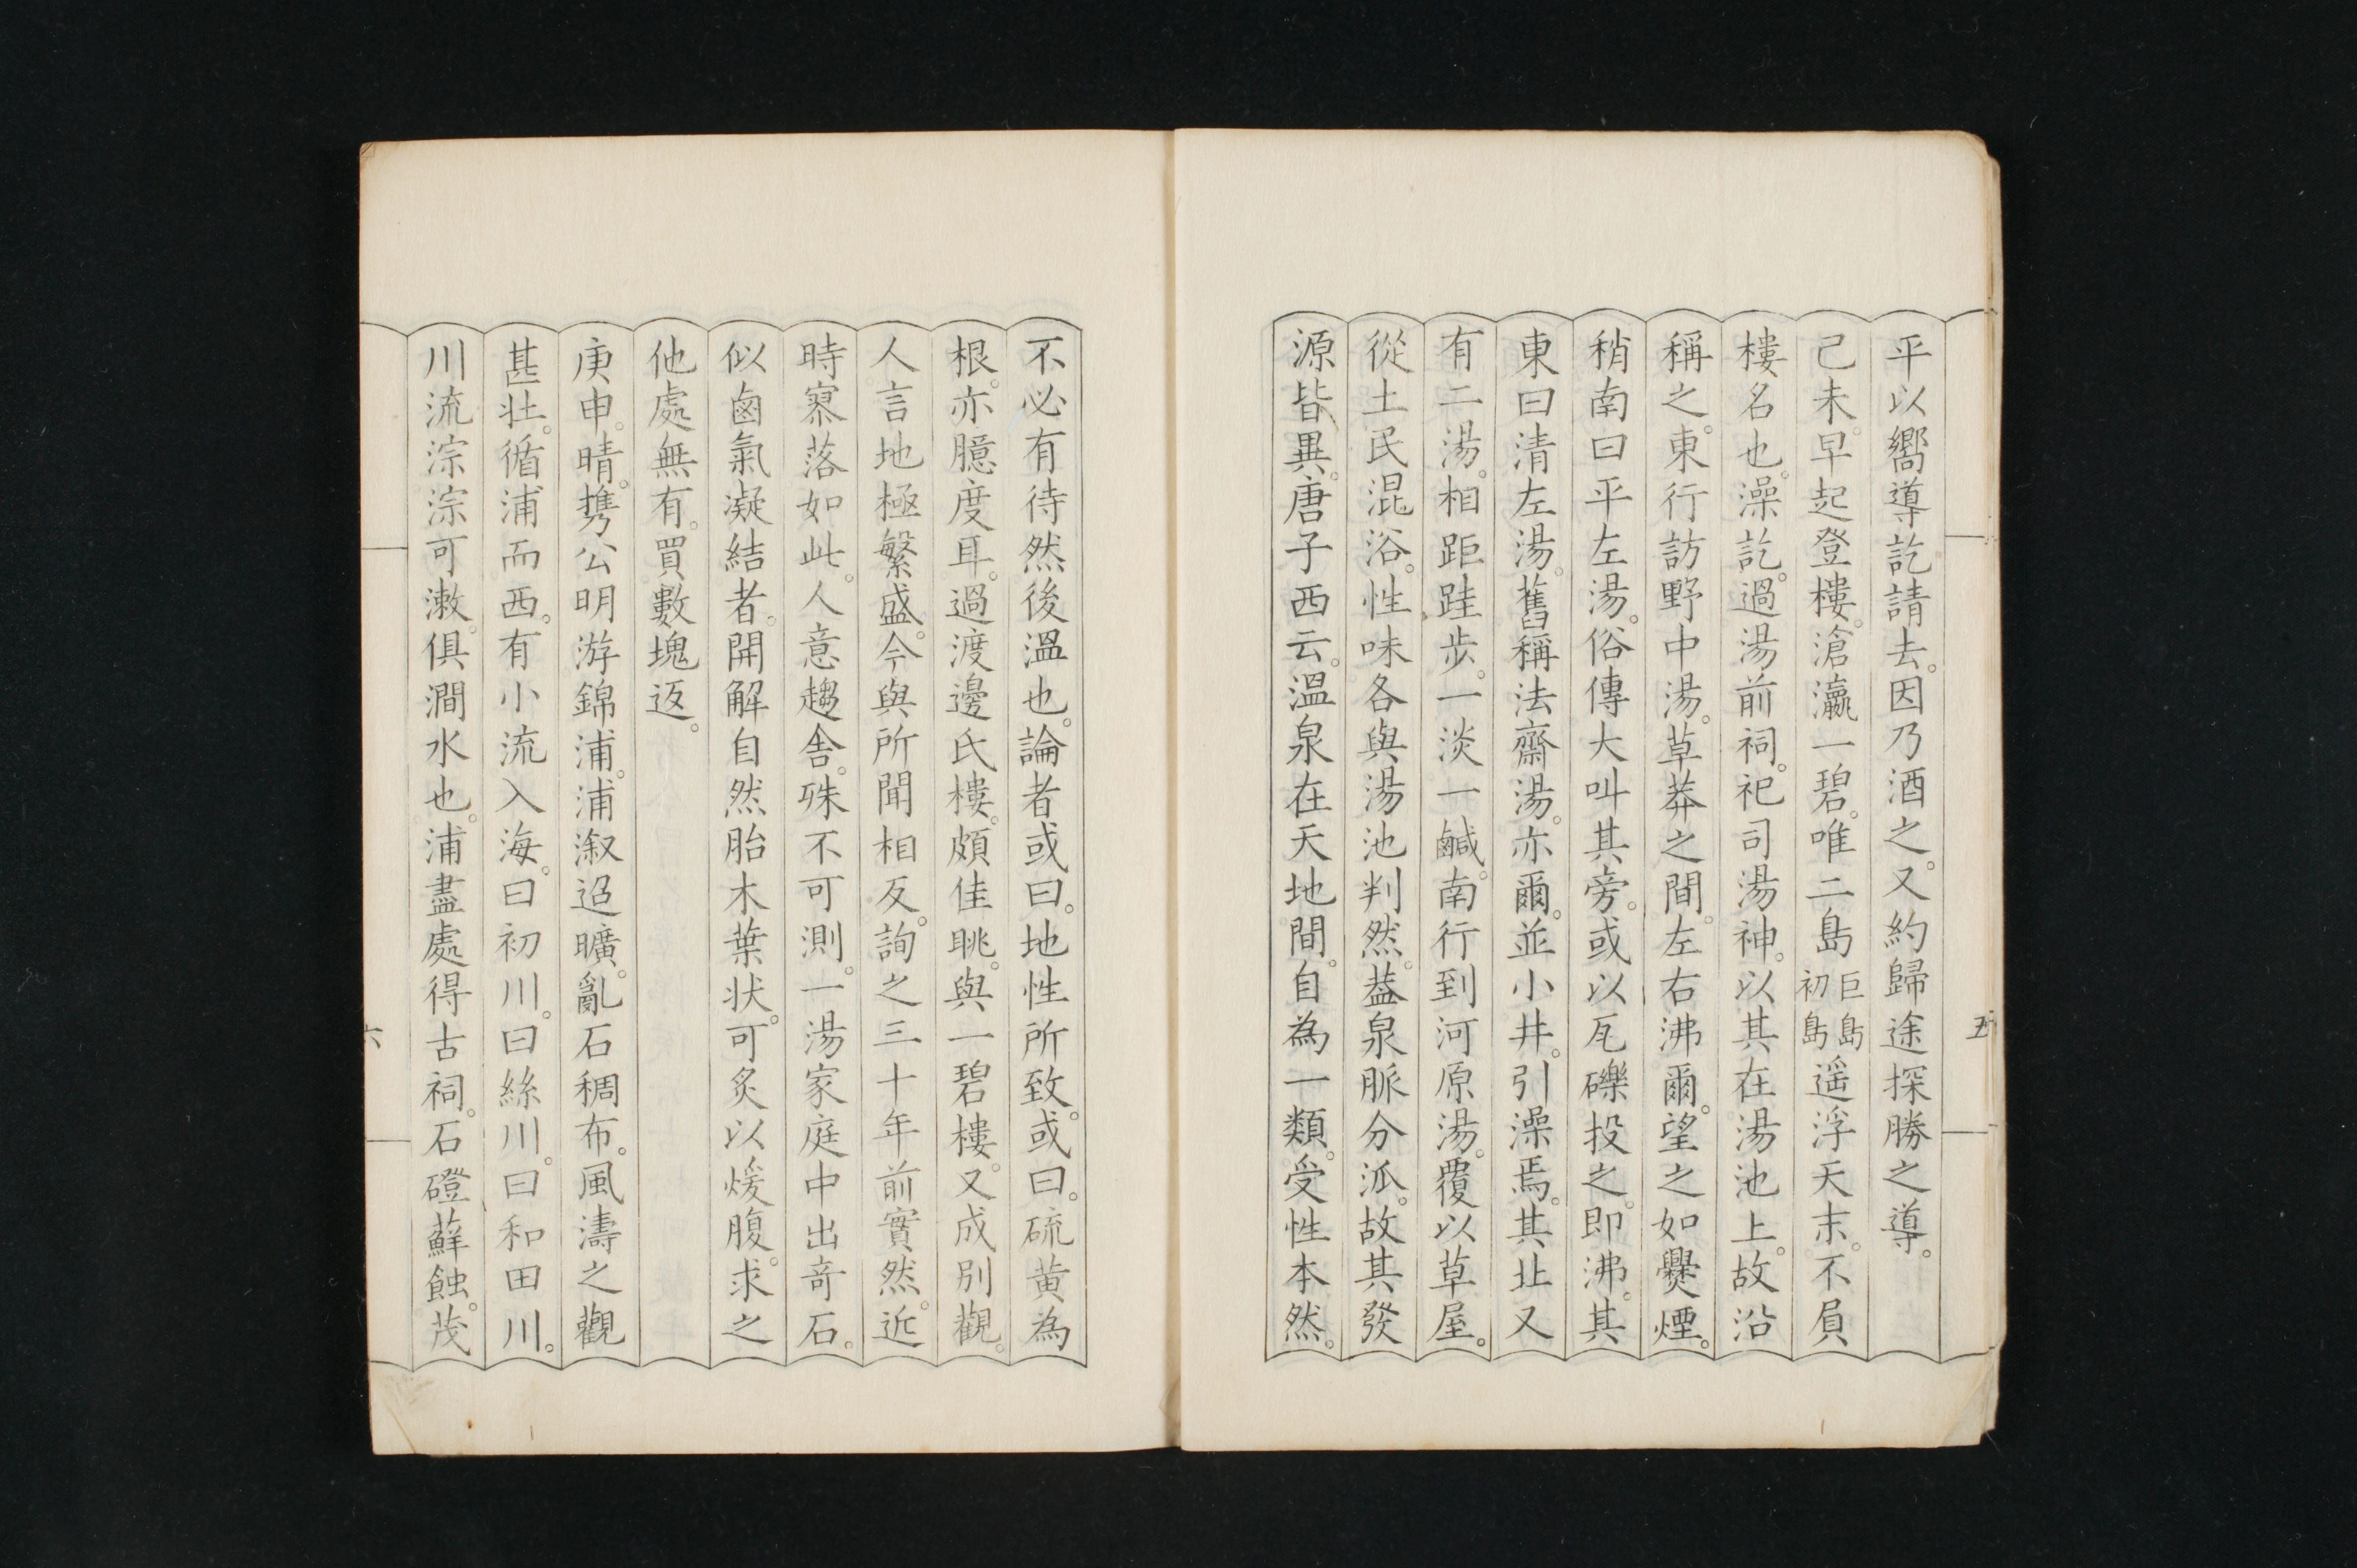 平以嚮導訖請去。因乃酒之。又約歸途探勝之導。
己未。早起登樓。滄瀛一碧。唯二島巨島初島遥浮天末。不負
樓名也。澡訖。過湯前祠。祀司湯神。以其在湯池上。故沿
稱之。東行訪野中湯。草莽之間。左右沸爾。望之如爨煙。
稍南曰平左湯。俗傳大叫其旁。或以瓦礫投之。即沸。其
東曰清左湯。舊稱法齋湯。亦爾。並小井。引澡焉。其北又
有二湯。相距跬步。一淡一鹹。南行到河原湯。覆以草屋。
從土民混浴。性味各與湯池判然。葢泉脈分派。故其發
源皆異。唐子西云。溫泉在天地間。自為一類。受性本然。
五
不必有待然後溫也。論者或曰。地性所致。或曰。硫黄為
根。亦臆度耳。過渡邊氏樓。頗佳眺。與一碧樓。又成別觀。
人言地極繁盛。今與所聞相反。詢之三十年前實然。近
時寥落如此。人意趨舍。殊不可測。一湯家庭中出奇石。
似鹵氣凝結者。開解自然胎木葉状。可炙以煖腹。求之
他處無有。買數塊返。
庚申。晴。携公明游錦浦。浦溆迢曠。亂石稠布。風濤之觀
甚壮。循浦而西。有小流入海。曰初川。曰絲川。曰和田川。
川流淙淙可漱。俱澗水也。浦盡處得古祠。石磴蘚蝕。茂
六